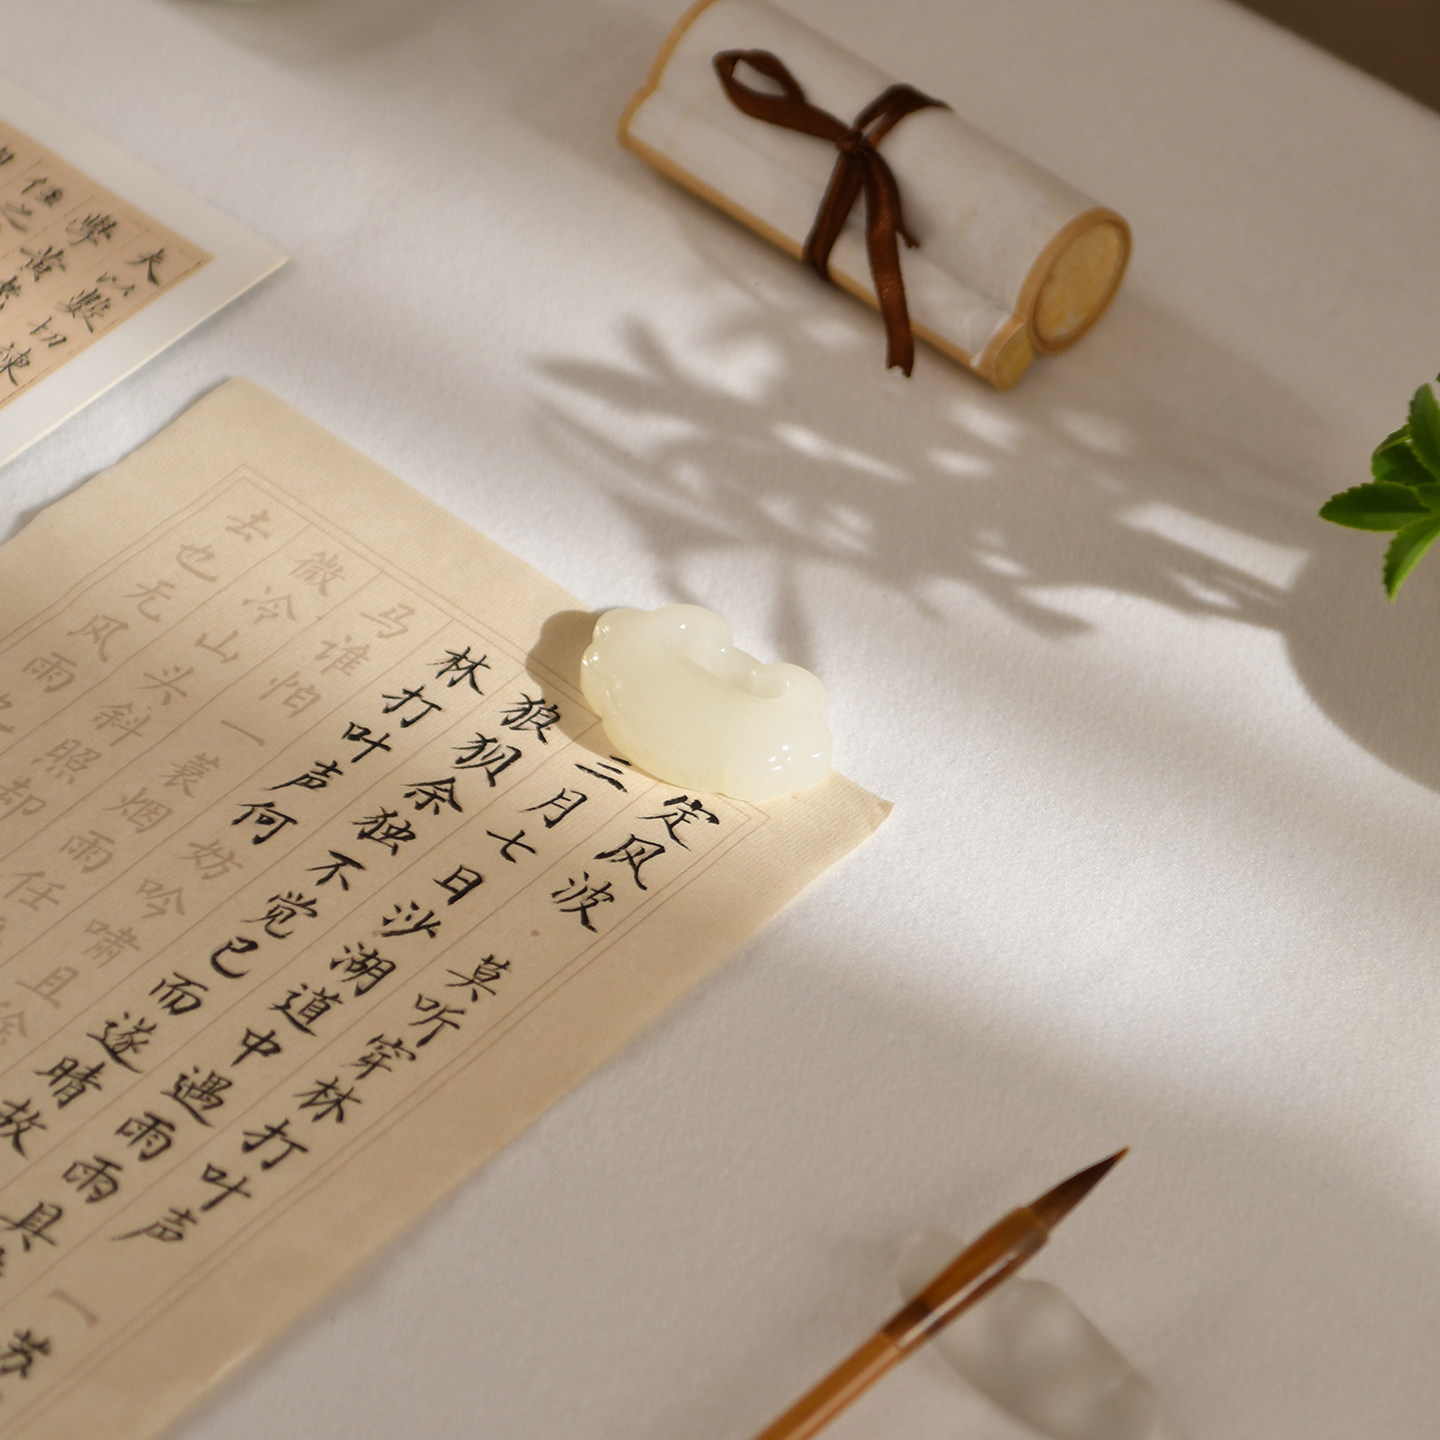 夫以數切諫
學黄老
任之
定风波 莫听穿林打叶声 一 苏
三月七日沙湖道中遇雨雨具
狼狈余独不觉已而遂晴故
林打叶声何妨吟啸且徐
马谁怕一蓑烟雨任
微冷山头斜照却
去也无风雨也